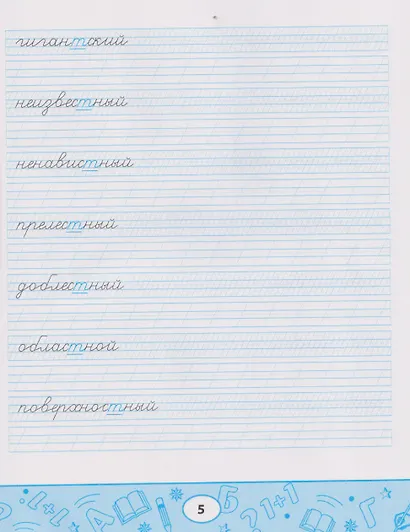 гигантский
неизвестный
ненавистный
прелестный
доблестный
областной
поверхностный
5
А Б 2 1+1 Г